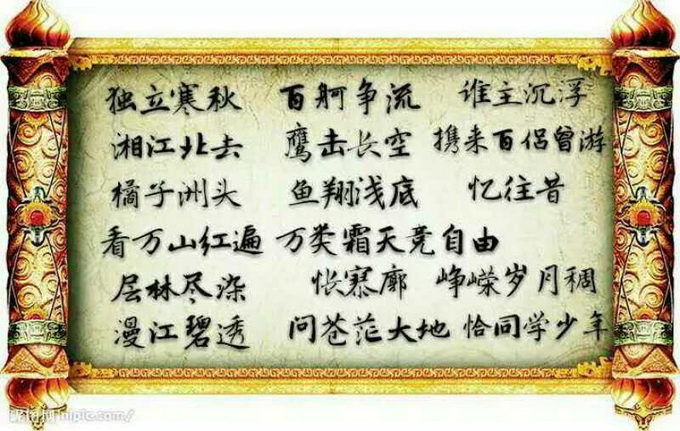 独立寒秋
湘江北去
橘子洲头
看万山红遍
层林尽染
漫江碧透
百舸争流
鹰击长空
鱼翔浅底
万类霜天竞自由
怅寥廓
问苍茫大地
谁主沉浮
携来百侣曾游
忆往昔
峥嵘岁月稠
恰同学少年
nipic.com/